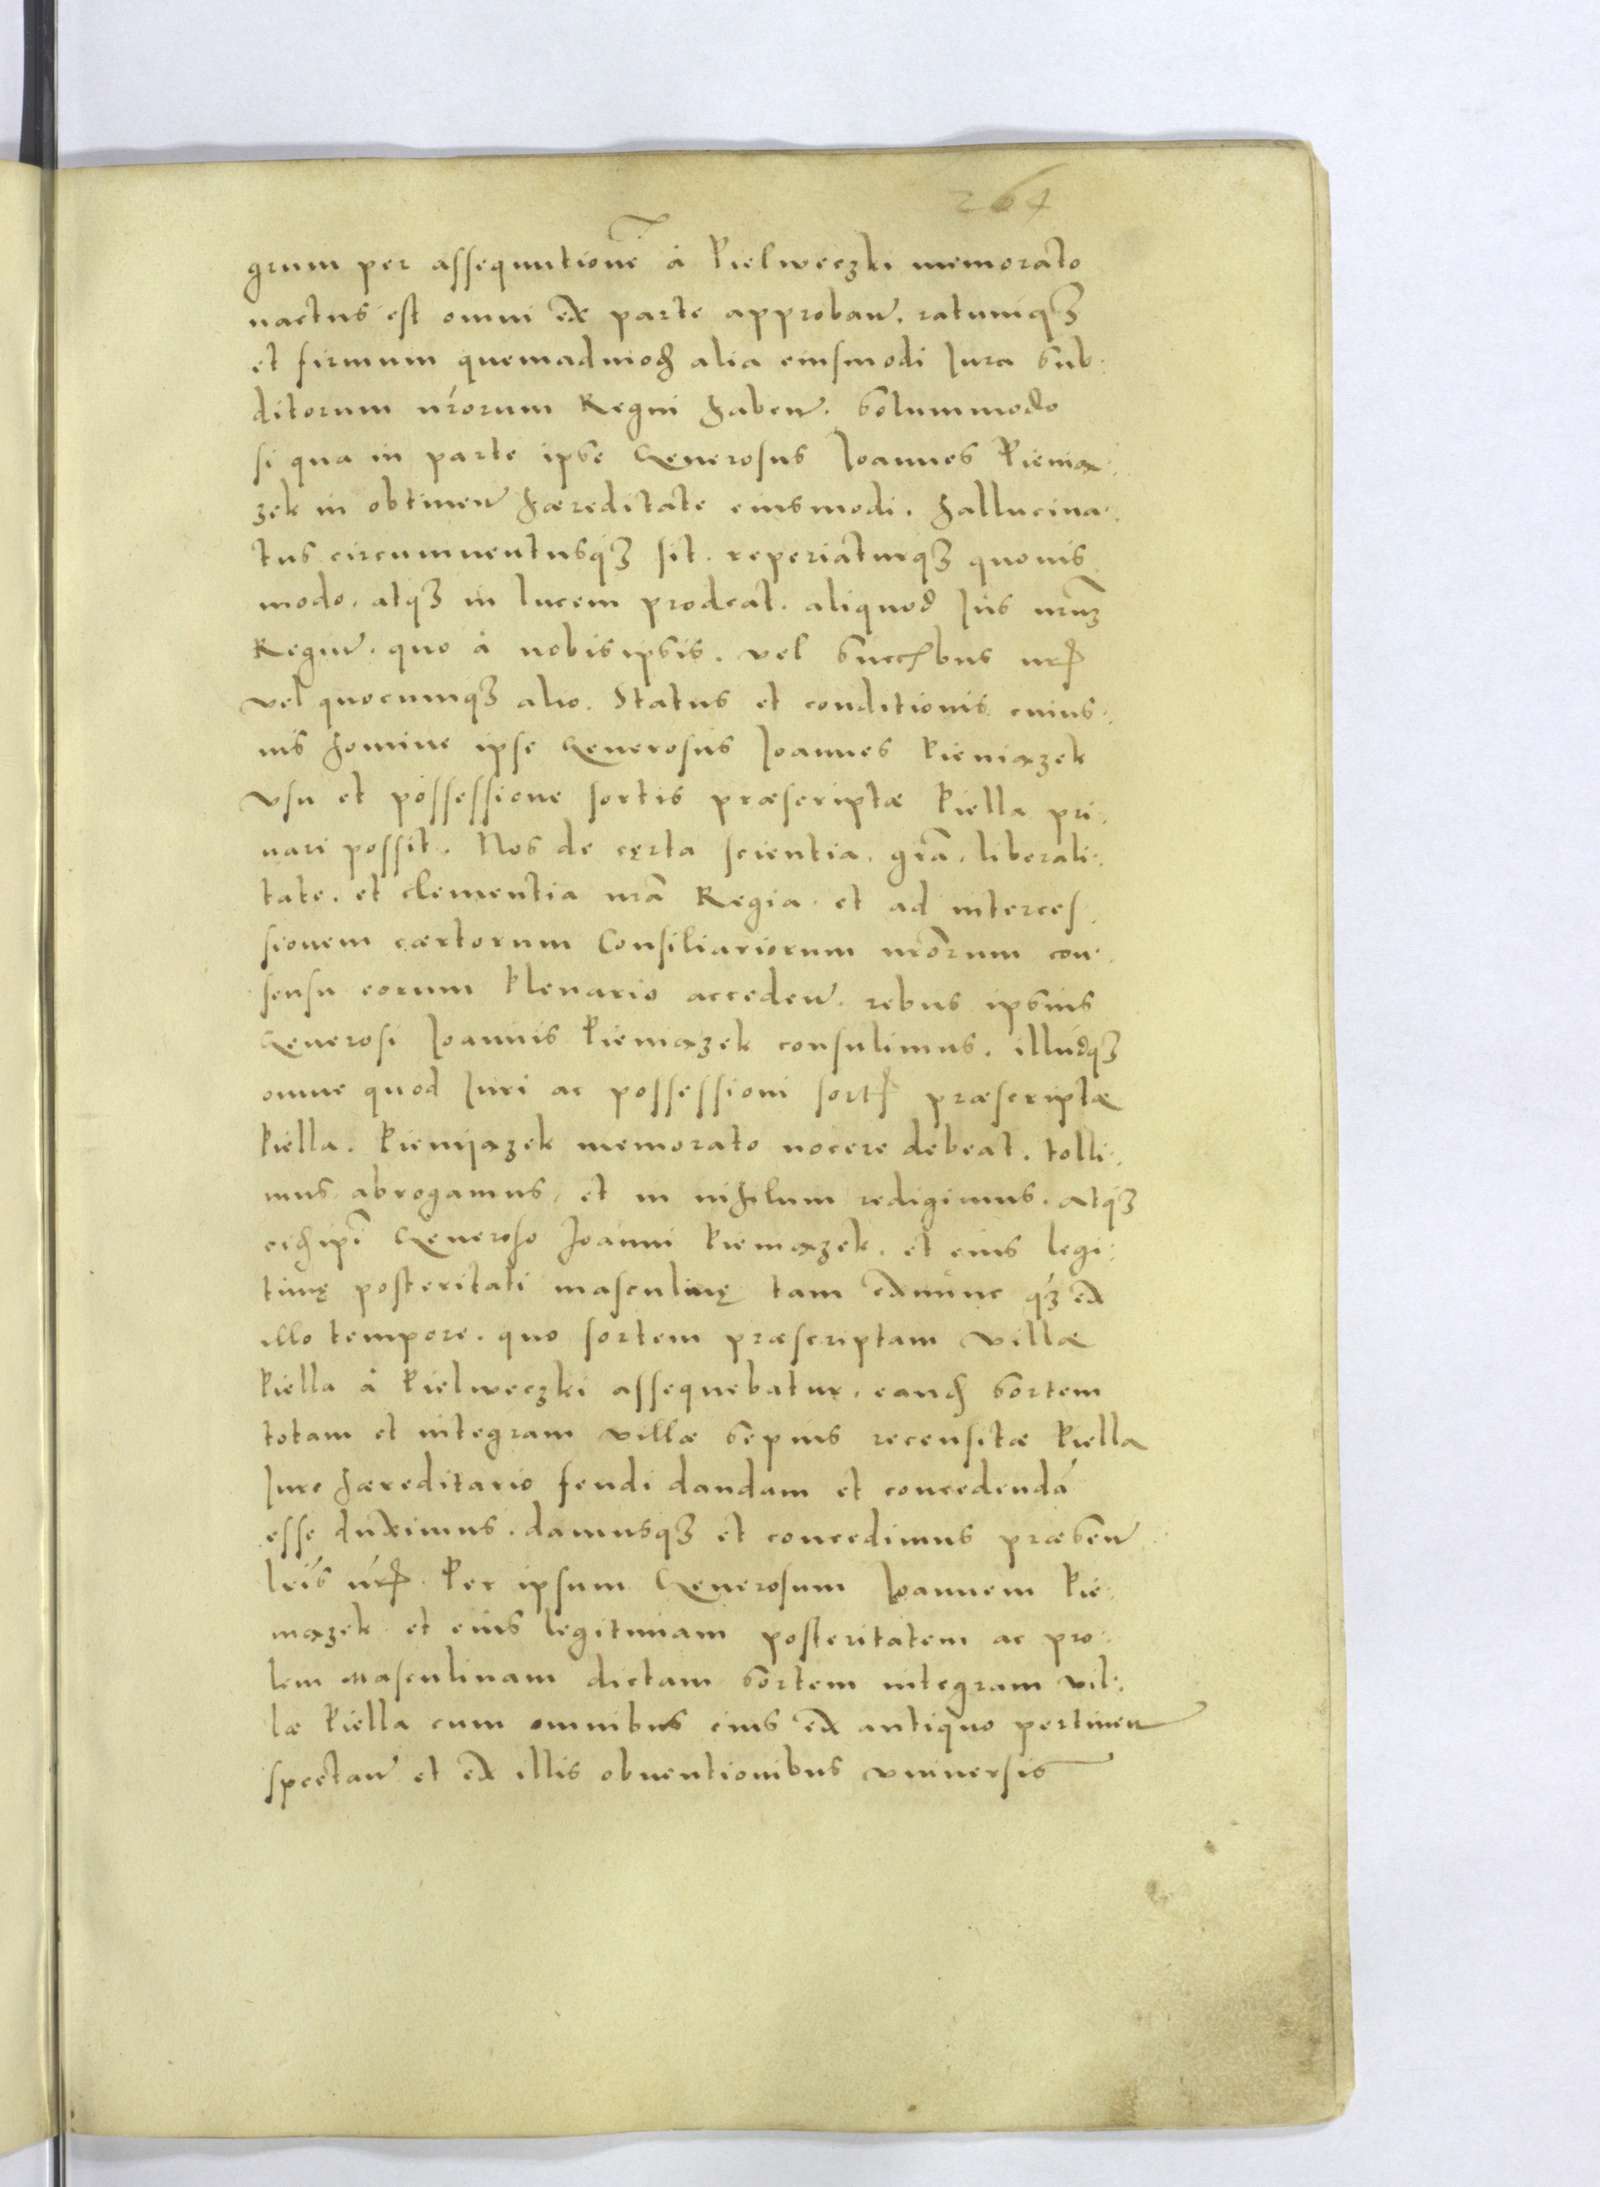 264
grum per assequutionē à Kielweczki memorato
nactus est omni ex parte approbaн. ratumqȝ
et firmum quemadmođ alia eiusmodi Iura Sub:
ditorum nrorum Regni habeн. Solummodo
si qua in parte ipse Generosus Ioannes Kienia:
zek in obtineн hæreditate eiusmodi. hallucina:
tus circumuentusqȝ sit. reperiaturqȝ quouis
modo. atqȝ in lucem prodeat. aliquod Ius nrūȝ
Regiuȝ. quo à nobis ipsis. vel Succbus nrꝭ
vel quocumqȝ alio. Status et conditionis cuius:
uis homine ipse Generosus Ioannes Kieniazek
vsu et possessione sortis præscriptæ Kiella pri:
uari possit. Nos de certa scientia. grā. liberali:
tate. et clementia nrā Regia. et ad interces:
sionem cærtorum Consiliariorum nrorum con:
sensu eorum Plenario accedeн. rebus ipsius
Generosi Ioannis Kieniazek consulimus. illudqȝ
omne quod Iuri ac possessioni sortꝭ præscriptæ
Kiella. Kienijazek memorato nocere debeat. tolli:
mus abrogamus, et in nihilum redigimus. atqȝ
eiđ ipi Generoso Ioanni Kieniazek. et eius legi:
timę posteritati masculinę tam exnunc qȝ ex
illo tempore. quo sortem præscriptam villæ
Kiella à Kielweczki assequebatur. eanđ Sortem
totam et integram villæ Sępius recensitæ Kiella
Iure hæreditario feudi dandam et concedendā
esse duximus. damusqȝ et concedimus præsenн
lris nrꝭ. Per ipsum Generosum Ioannem Kie:
niazek et eius legitimam posteritatem ac pro:
lem masculinam dictam Sortem integram vil:
læ Kiella cum omnibus eius ex antiquo pertineн
spectaн et ex illis obuentionibus vniuersis